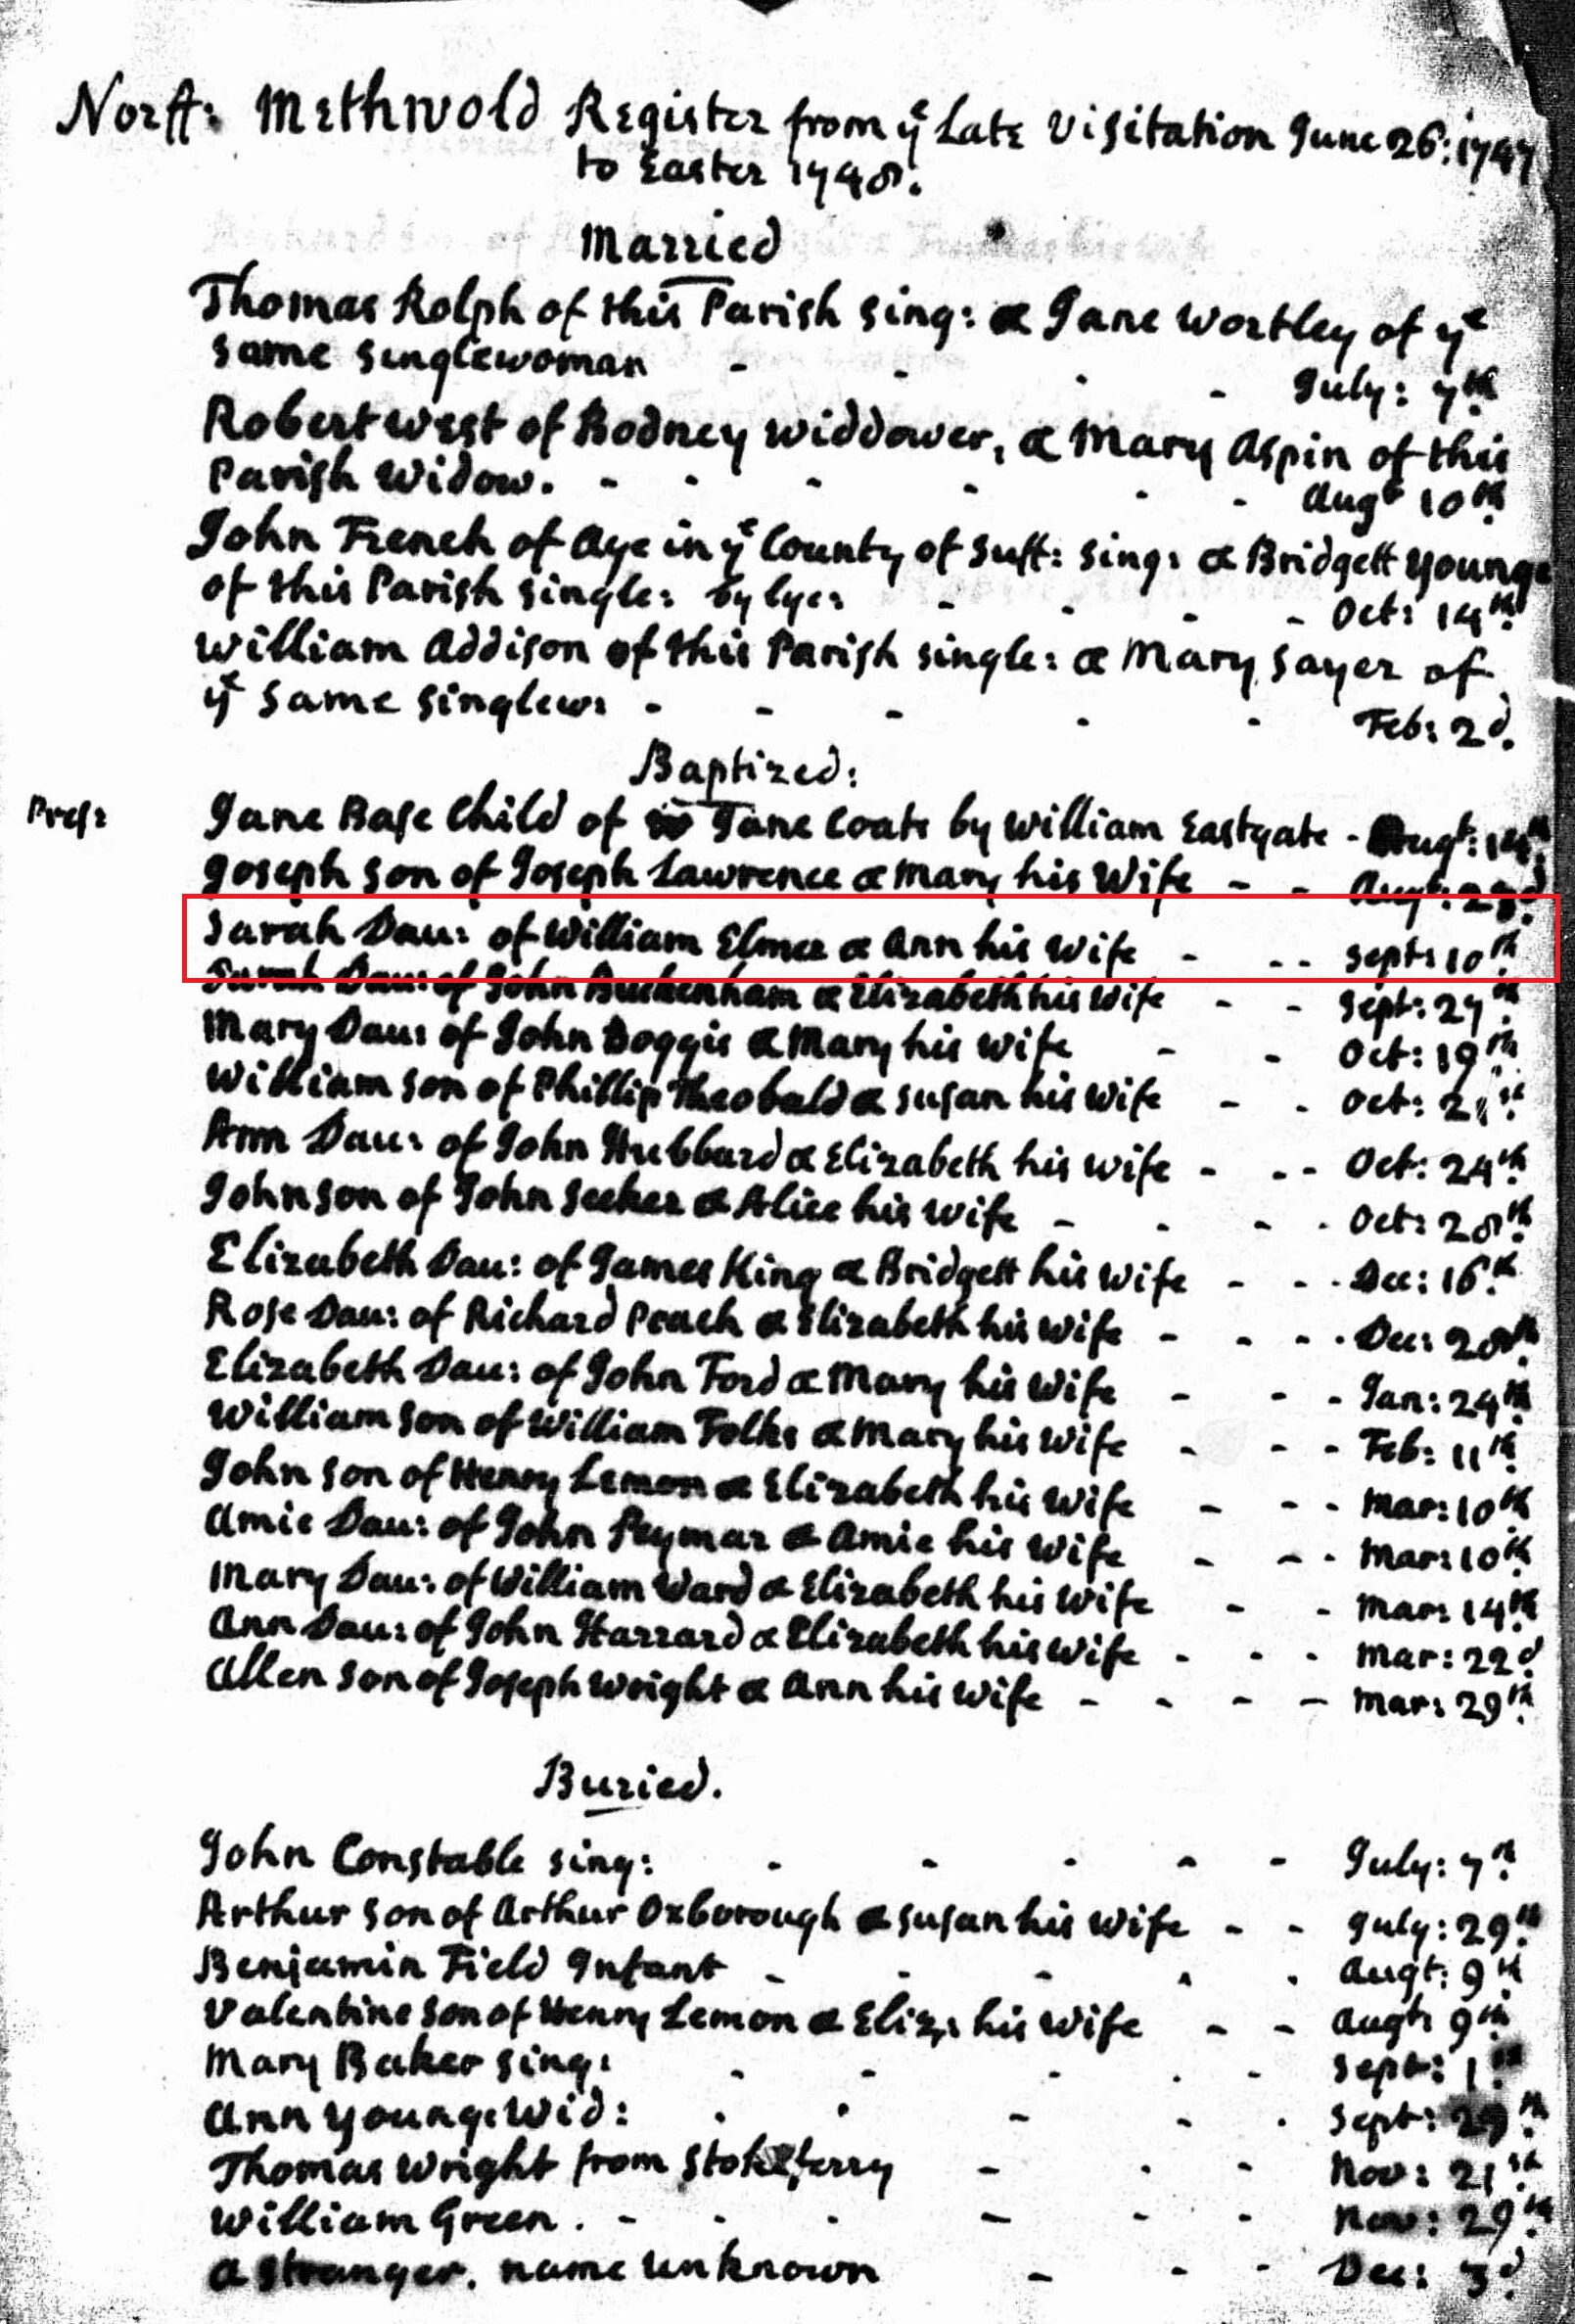 Norff: Methwold Register from ye Late Visitation June 26: 1747
to Easter 1748.
Married
Thomas Rolph of this Parish sing: & Jane Wortley of ye
same singlewoman - - - - July: 7th
Robert West of Bodney Widdower, & Mary Aspin of this
Parish Widow. - - - - - - Augt 10th
John French of Aye in ye County of Suff: sing: & Bridgett Younge
of this Parish single: by lyc: - - - - Oct: 14th
William Addison of this Parish single: & Mary Sayer of
ye same singlew: - - - - - Feb: 2d.
Baptized:
Pres: Jane Base Child of Jane Coats by William Eastgate - Augt: 14th
Joseph son of Joseph Lawrence & Mary his Wife - - Augt: 23d
Sarah Dau: of William Elmer & Ann his Wife - - - Sept: 10th
Sarah Dau: of John Buckenham & Elizabeth his Wife - - Sept: 27th
Mary Dau: of John Boggis & Mary his Wife - - Oct: 19th
William son of Phillip Theobald & Susan his Wife - - Oct: 21st
Ann Dau: of John Hubbard & Elizabeth his Wife - - - Oct: 24th
John son of John Secker & Alice his Wife - - - - Oct: 28th
Elizabeth Dau: of James King & Bridgett his Wife - - - Dec: 16th
Rose Dau: of Richard Peach & Elizabeth his Wife - - - - Dec: 28th
Elizabeth Dau: of John Ford & Mary his Wife - - - Jan: 24th
William son of William Folks & Mary his Wife - - - Feb: 11th
John son of Henry Lemon & Elizabeth his Wife - - - Mar: 10th
Amie Dau: of John Peymar & Amie his Wife - - - Mar: 10th
Mary Dau: of William Ward & Elizabeth his Wife - - Mar: 14th
Ann Dau: of John Harrard & Elizabeth his Wife - - - Mar: 22d
Allen son of Joseph Wright & Ann his Wife - - - - Mar: 29th
Buried.
John Constable sing: - - - - - July: 7th
Arthur son of Arthur Oxborough & Susan his Wife - - July: 29th
Benjamin Field Infant - - - - - Augt: 9th
Valentine son of Henry Lemon & Eliz: his Wife - - Augt: 9th
Mary Baker sing: - - - - - Sept: 1st
Ann Younge Wid: - - - - - Sept: 29th
Thomas Wright from Stokeferry - - - Nov: 21st
William Green. - - - - - - Nov: 29th
A stranger, name unknown - - - Dec: 3d